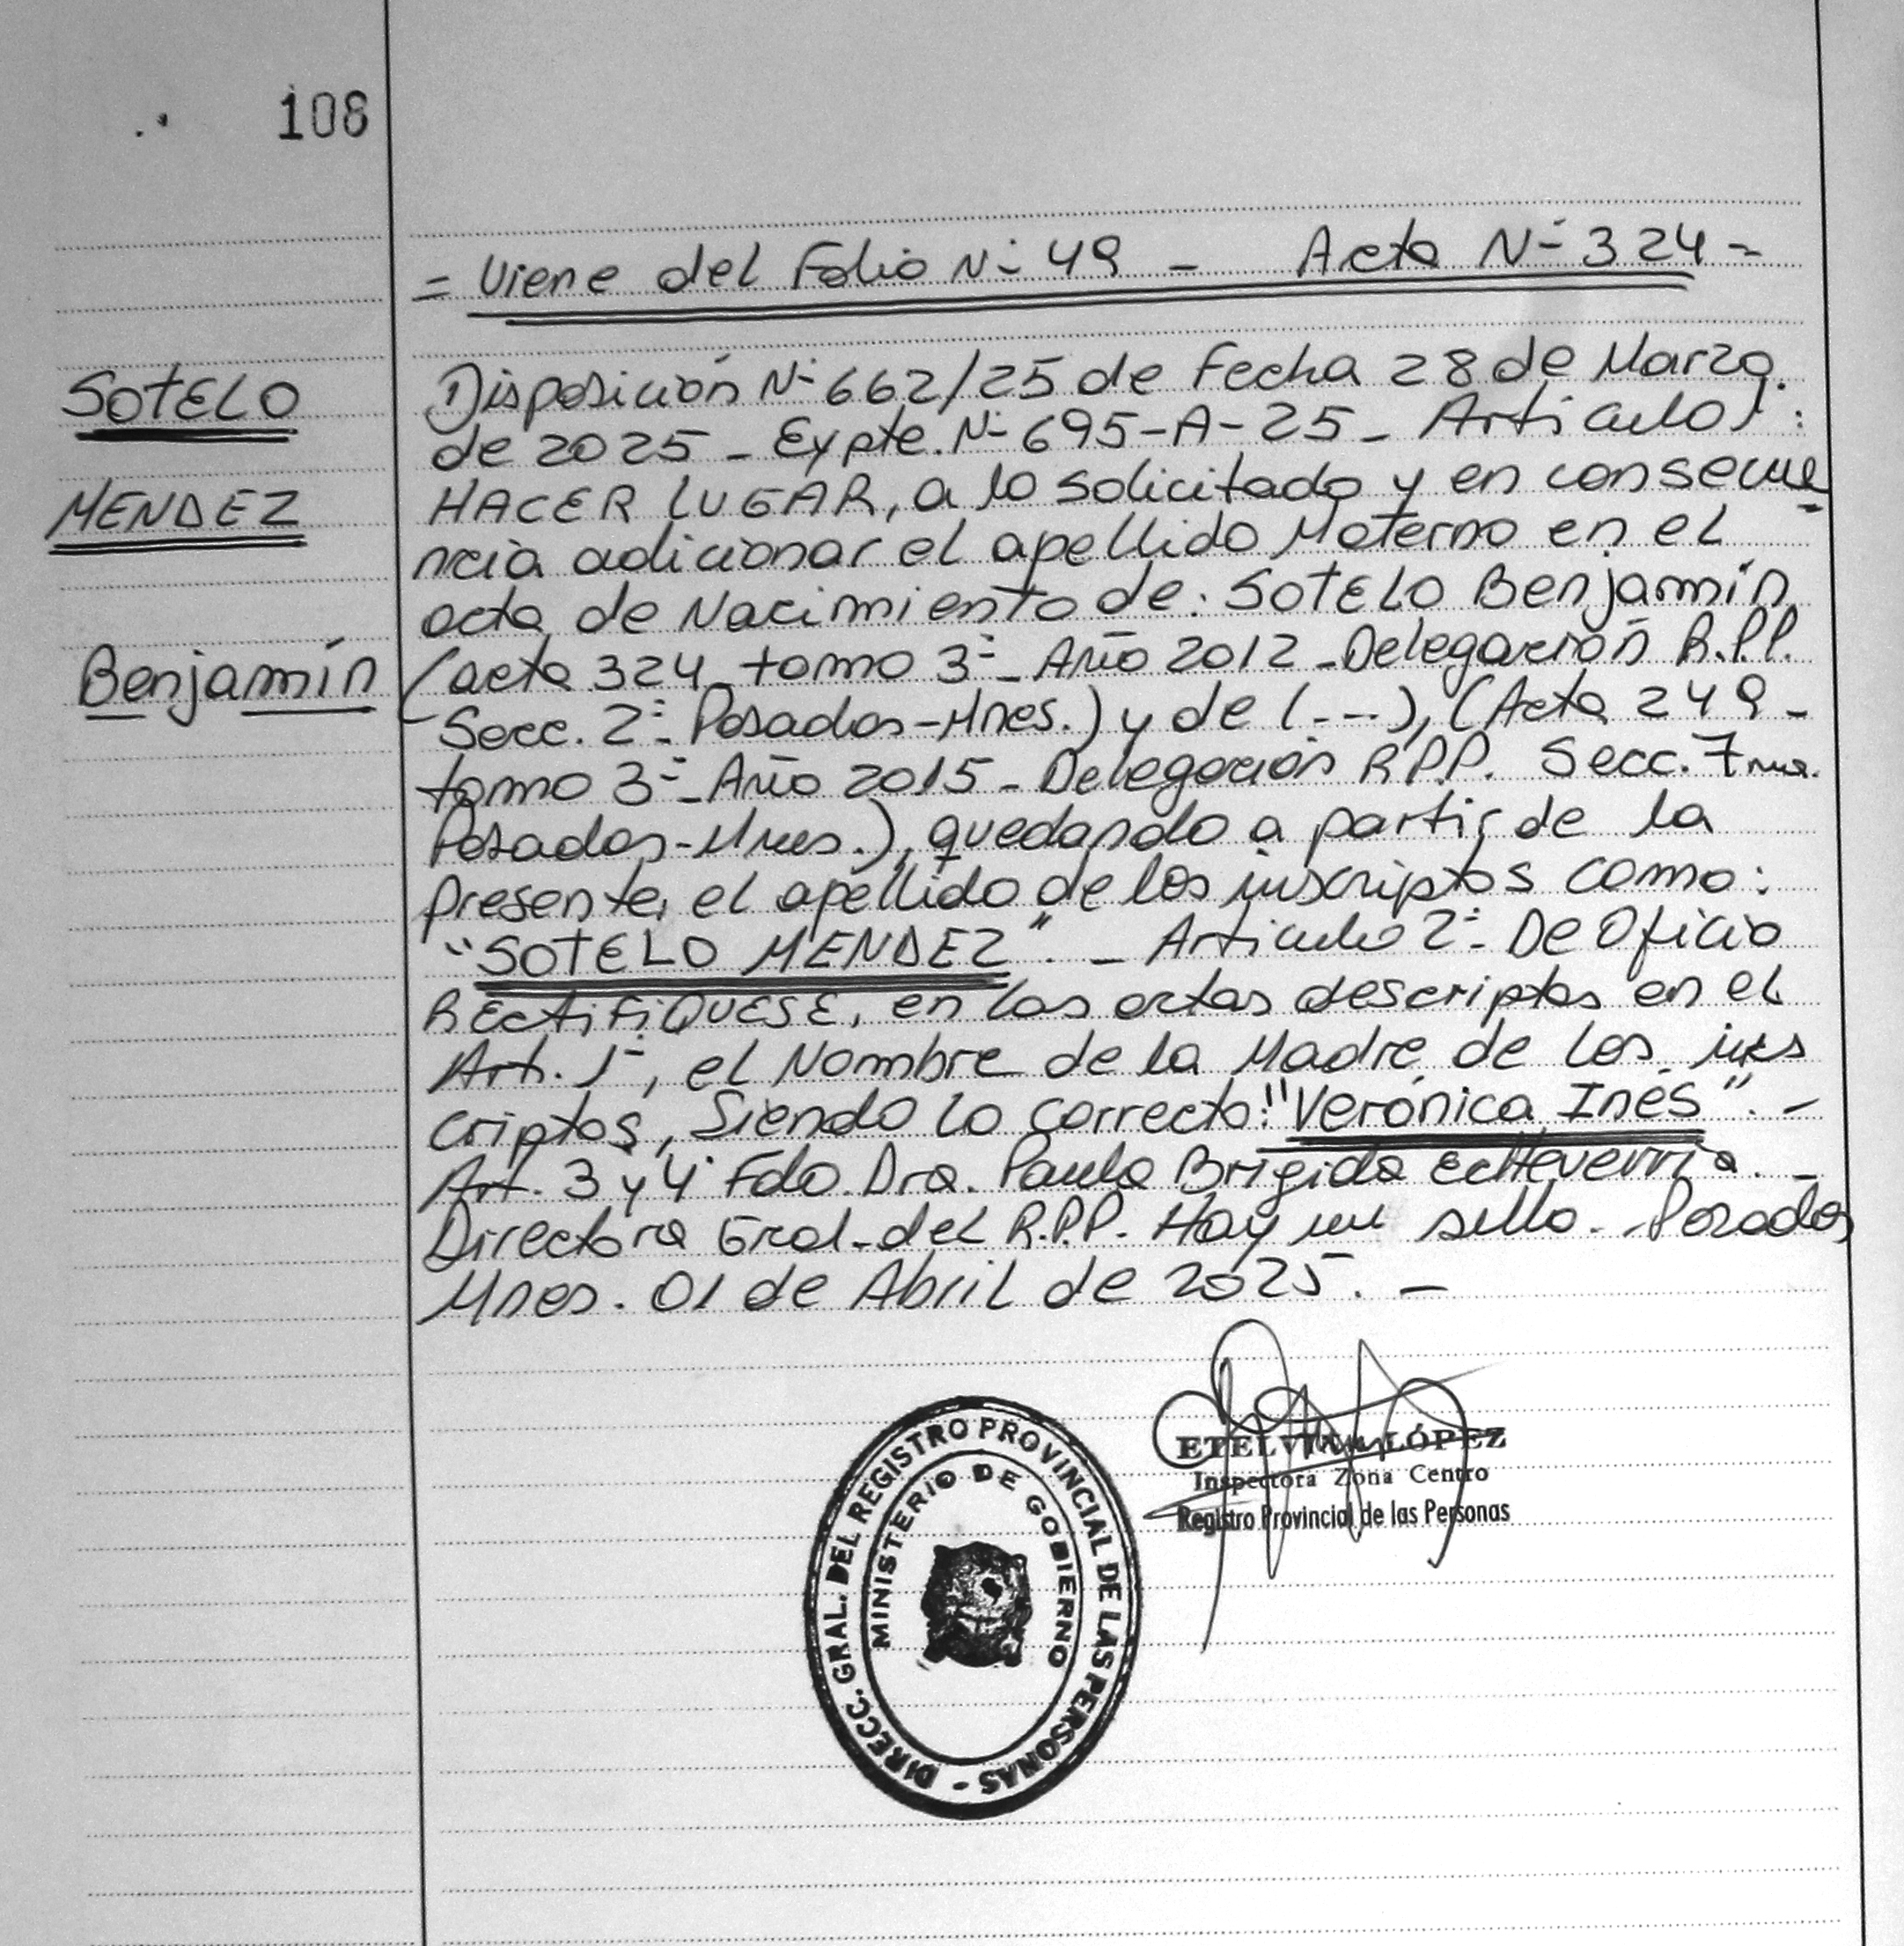 108
= Viene del Folio Nº 49 - Acta Nº 324 =
SOTELO
MENDEZ
Benjamín
Disposición Nº 662/25 de Fecha 28 de Marzo.
de 2025 - Expte. Nº 695-A-25 - Articulo 1:
HACER LUGAR, a lo solicitado y en consecue
ncia adicionar el apellido Materno en el
acta de Nacimiento de: SOTELO Benjamín
(acta 324 tomo 3º - Año 2012 - Delegación R.P.P.
Secc. 2º - Posadas - Mnes.) y de (---), (Acta 249 -
tomo 3º - Año 2015 - Delegación R.P.P. Secc. 7ma.
Posadas - Mnes.), quedando a partir de la
presente, el apellido de los inscriptos como:
"SOTELO MENDEZ". - Articulo 2º - De Oficio
RECTIFIQUESE, en las actas descriptas en el
Art. 1º, el Nombre de la Madre de los ins
criptos, Siendo lo correcto: "Verónica Inés". -
Art. 3 y 4º Fdo. Dra. Paula Brigida Echeverria. -
Directora Gral. del R.P.P. Hay un sello. - Posadas
Mnes. 01 de Abril de 2025. -
ETELVINA LÓPEZ
Inspectora Zona Centro
Registro Provincial de las Personas
DIRECC. GRAL. DEL REGISTRO PROVINCIAL DE LAS PERSONAS -
MINISTERIO DE GOBIERNO